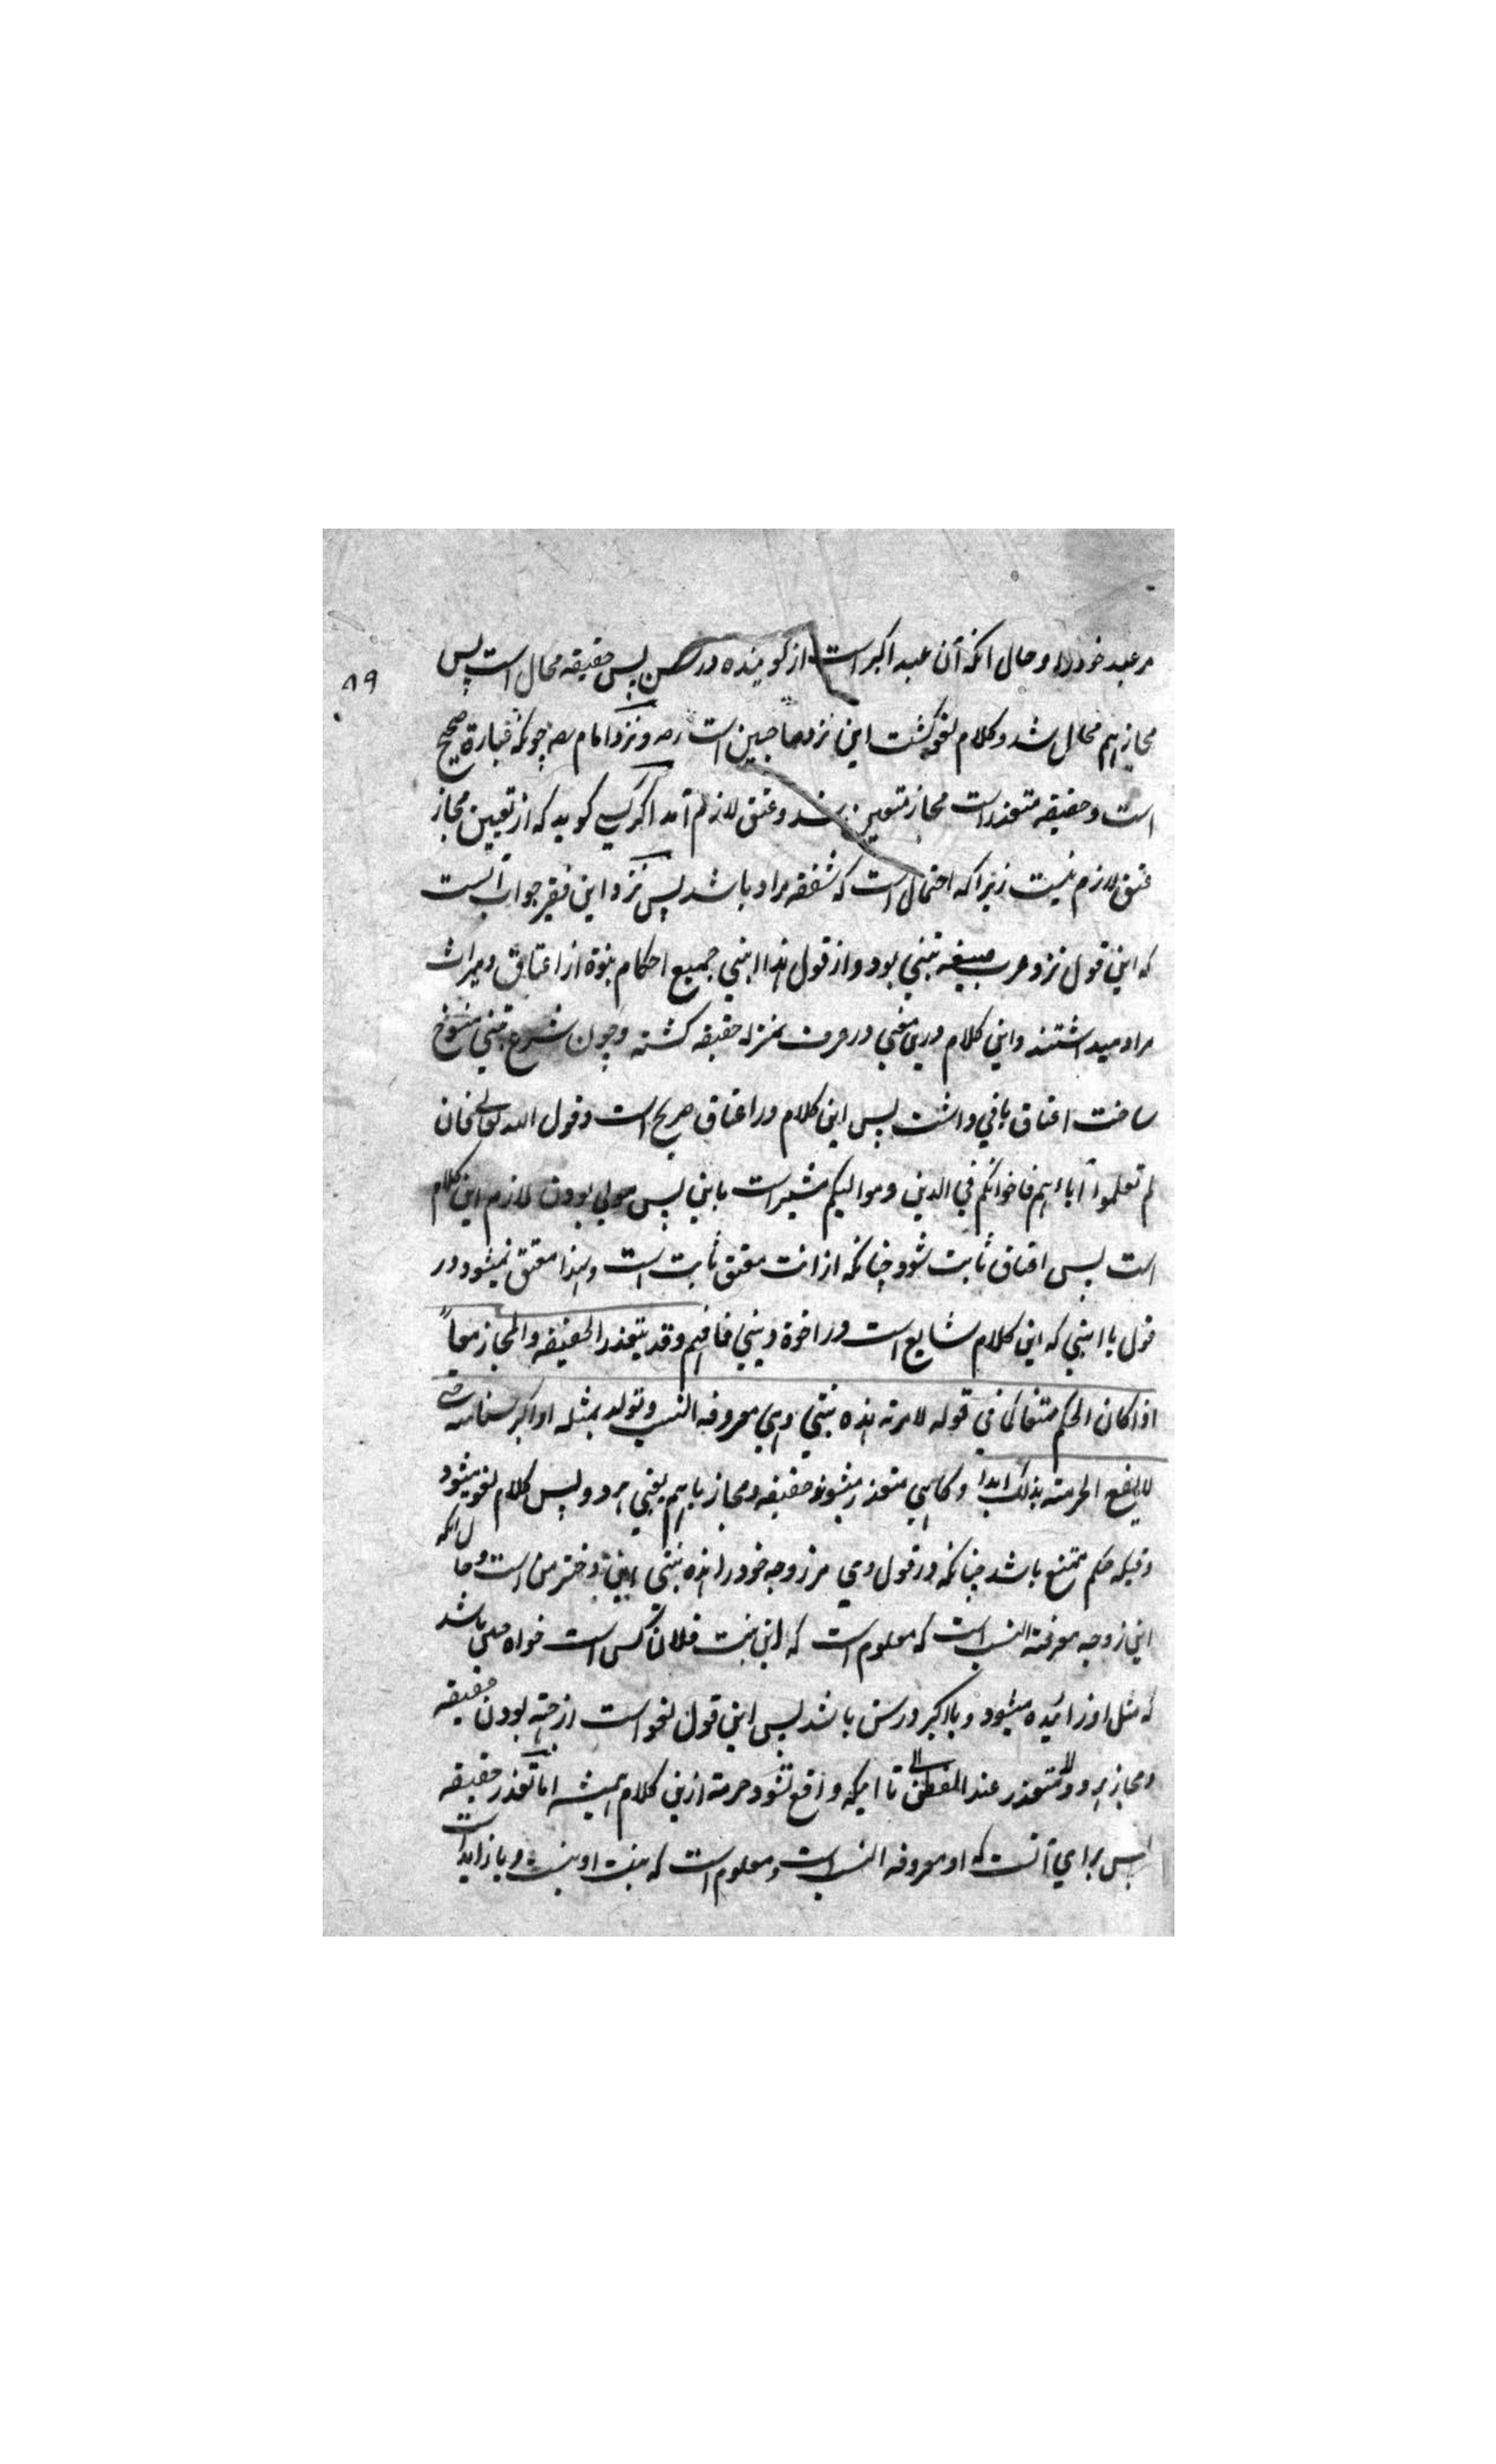 مر عبد خود را و حال انکه آن عبد اکبر است از کوینده در سن پس حقیقه محال است پس
۸۹
مجاز هم محال شد و کلام لغو کشت این نزد صاحبین است رح و نزد امام رح چونکه عبارة صحیح
است و حقیقه متعذر است مجاز متعین شد و عتق لازم آمد اکر کسی کوید که از تعین مجاز
عتق لازم نیست زیرا که احتمال است که شفقه مراد باشد پس نزد این فقیر جواب آنست
که این قول نزد عرب صیغه تبنی بود و از قول هذا ابنی جمیع احکام بنوة از اعتاق و میراث
مراد میداشتند و این کلام درین معنی در عرف بمنزله حقیقه کشته و چون شرع تبنی منسوخ
ساخت اعتاق باقی داشت پس این کلام در اعتاق صریح است و قول الله تعالی فان
لم تعلموا آباءهم فاخوانکم فی الدین و موالیکم مشیر است باین پس مولی بودن لازم این کلام
است پس اعتاق ثابت شود چنانکه از انت معتق ثابت است و لهذا معتق نمیشود در
قول یا ابنی که این کلام شایع است در اخوة دینی فافهم وقد یتعذر الحقیقه والمجاز معا
اذا کان الحکم ممتنعا کما فی قوله لامرته هذه بنتی وهی معروفه النسب وتولد بمثله او اکبر سنا منه حتی
لا یقع الحرمته بذلک ابدا و کاهی متعذر میشوند حقیقه و مجاز باهم یعنی هر دو پس کلام لغو میشود
وقتیکه حکم ممتنع باشد چنانکه در قول وی مر زوجه خود را هذه بنتی این دختر من است و حال انکه
این زوجه معرفته النسب است که معلوم است که این بنت فلان کس است خواه باشد
که مثل او زائیده میشود و یا اکبر در سن باشد پس این قول لغو است از جهته بودن حقیقه
و مجاز هر دو متعذر عند تا اینکه واقع نشود حرمته ازین کلام همیشه اما تعذر حقیقه
پس برای آنست که او معروفه النسب است و معلوم است که بنت او نیست و یا زاید است